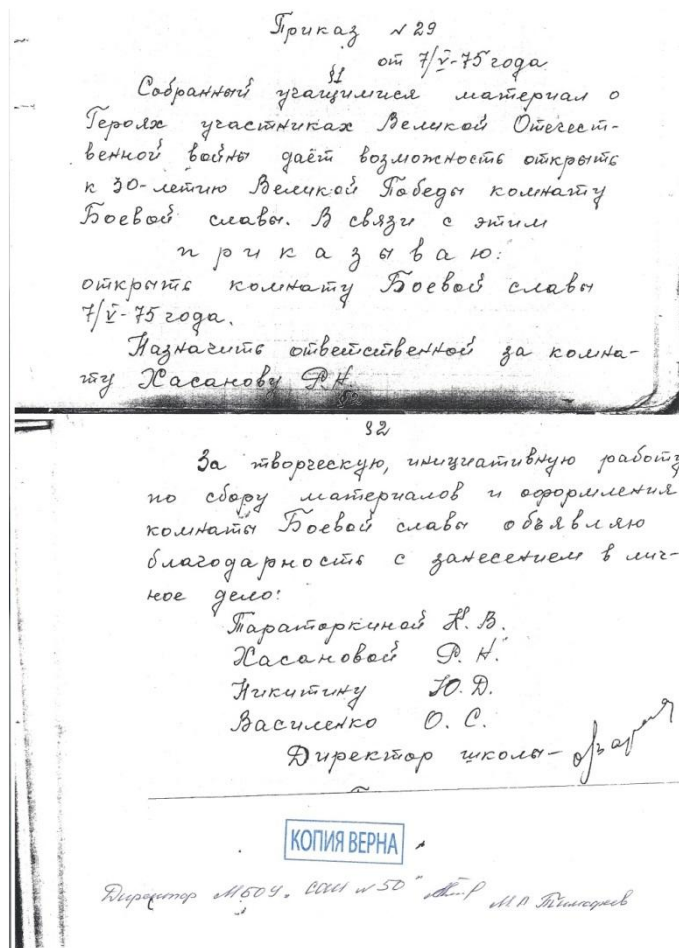 Приказ № 29
от 7/V-75 года
§1
Собранный учащимися материал о
Героях участниках Великой Отечест-
венной войны даёт возможность открыть
к 30-летию Великой Победы комнату
Боевой славы. В связи с этим
приказываю:
открыть комнату Боевой славы
7/V-75 года.
Назначить ответственной за комна-
ту Хасанову Р.Н.
§2
За творческую, инициативную работу
по сбору материалов и оформления
комнаты Боевой славы объявляю
благодарность с занесением в лич-
ное дело:
Тараторкиной Н. В.
Хасановой Р. Н.
Никитину Ю. Д.
Василенко О. С.
Директор школы-
КОПИЯ ВЕРНА
Директор МБОУ "СОШ №50"